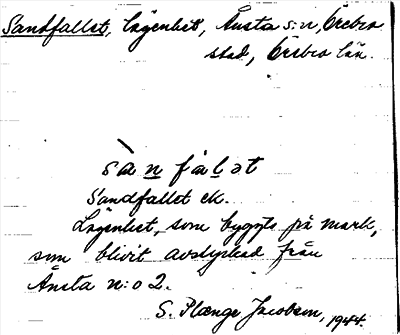 Sandfallet, lägenhet, Ånsta s:n, Örebro
stad, Örebro län.
sànfalət
Sandfallet ek.
Lägenhet, som byggts på mark,
som blivit avstyckad från
Ånsta n:o 2.
S. Plænge Jacobson, 1944.